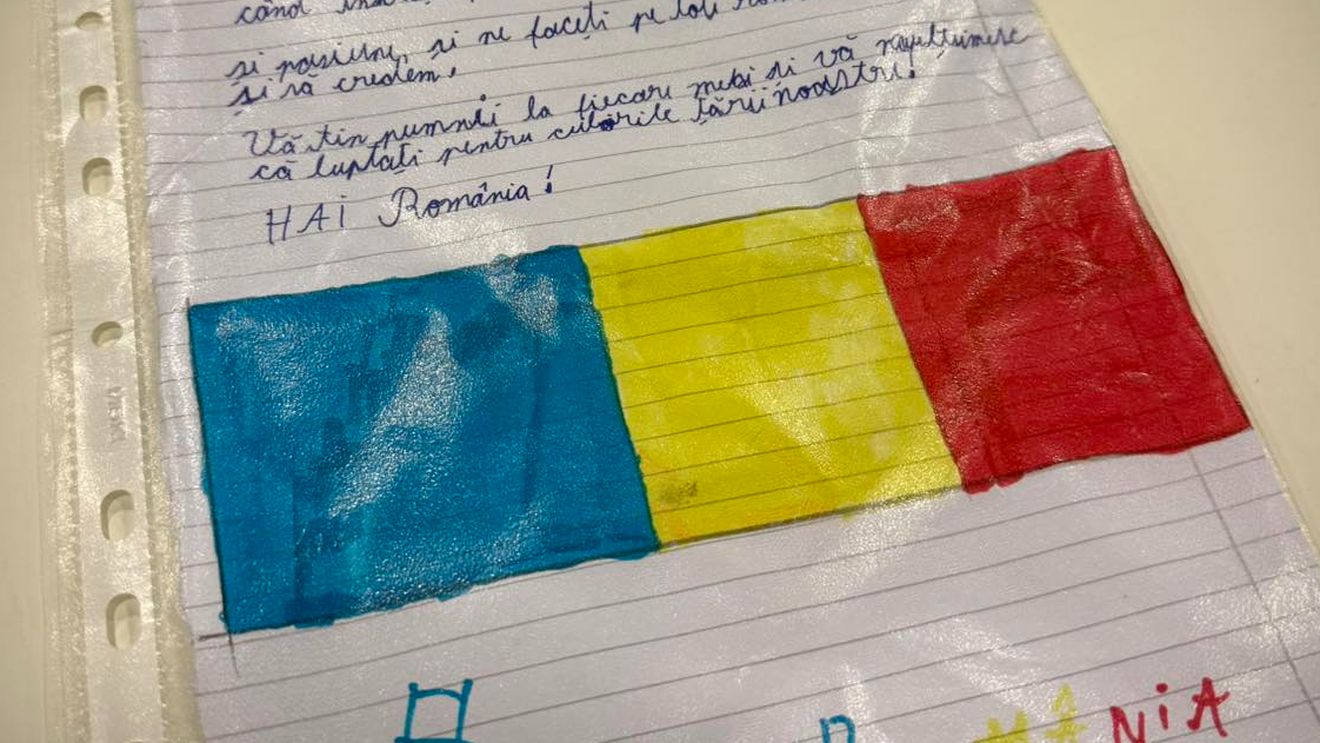 când
și pasiune, și ne faceți pe toți
și să credem!
Vă țin pumnii la fiecare meci și vă mulțumesc
că luptați pentru culorile țării noastre!
HAI România!
NIA